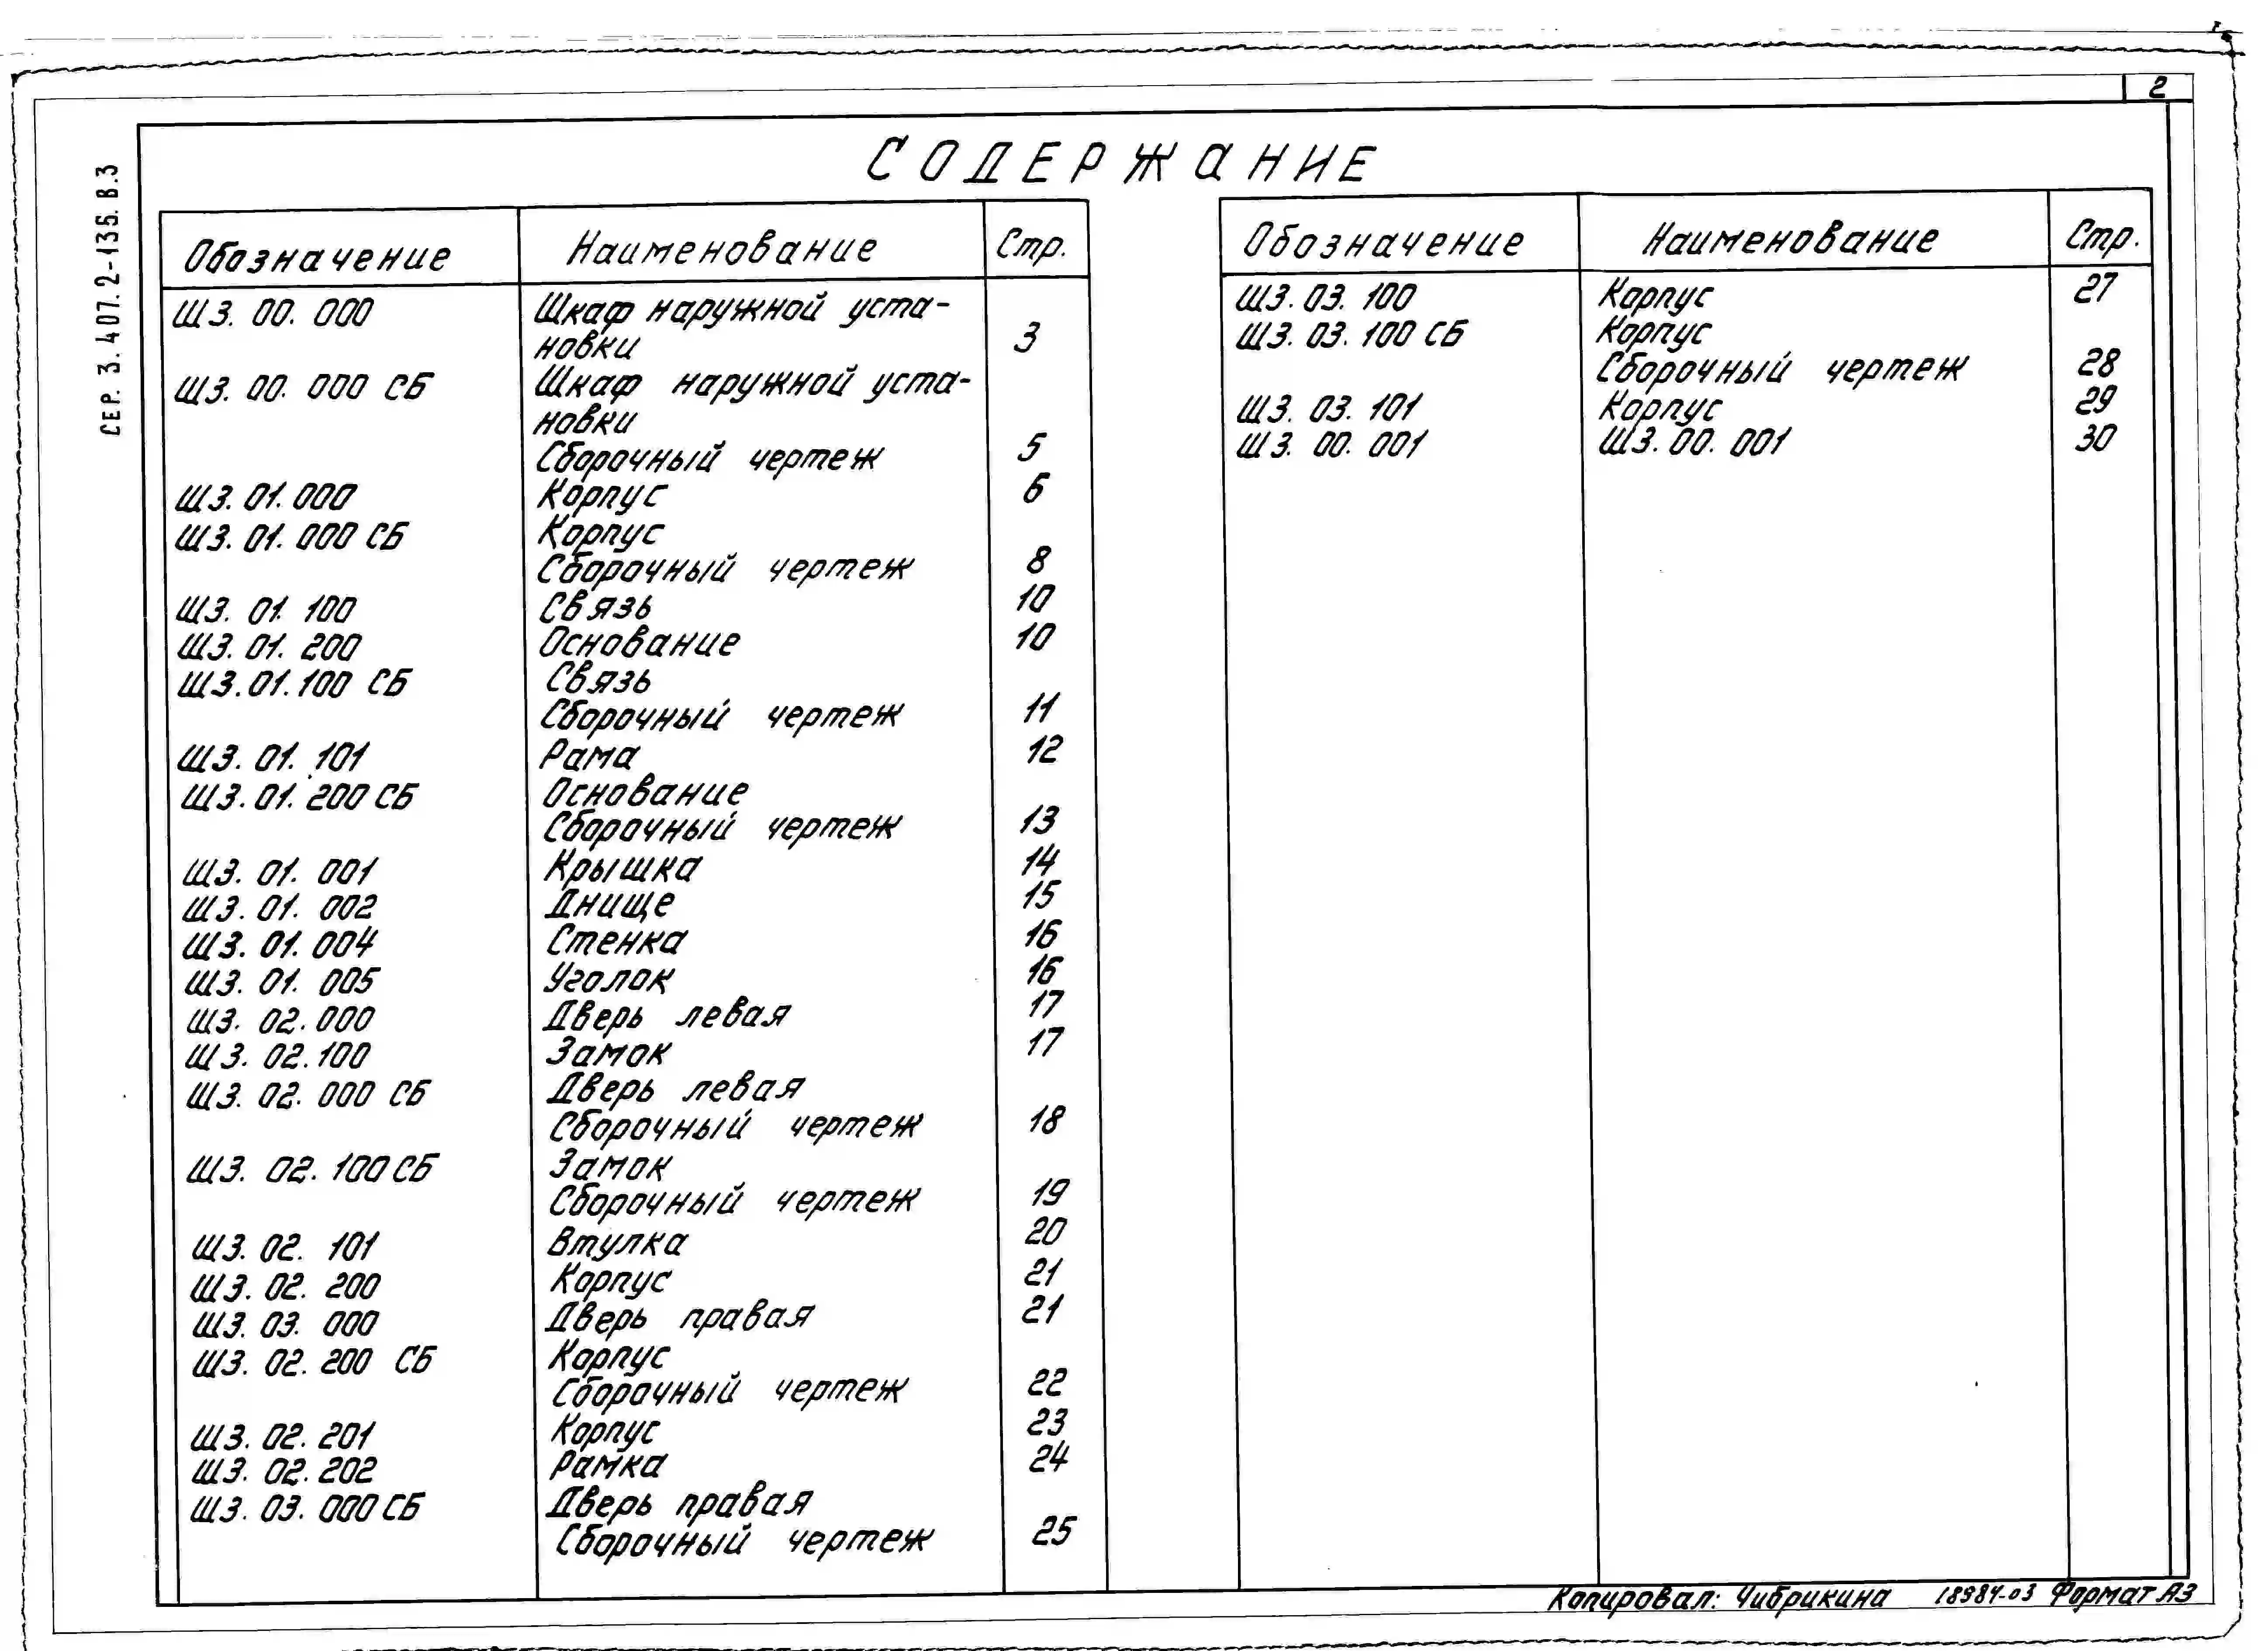 2
СЕР. 3.407.2-135. В.3
СОДЕРЖАНИЕ
Обозначение Наименование Стр.
ШЗ. 00. 000 Шкаф наружной уста-
новки 3
ШЗ. 00. 000 СБ Шкаф наружной уста-
новки
Сборочный чертеж 5
ШЗ. 01. 000 Корпус 6
ШЗ. 01. 000 СБ Корпус
Сборочный чертеж 8
ШЗ. 01. 100 Связь 10
ШЗ. 01. 200 Основание 10
ШЗ. 01. 100 СБ Связь
Сборочный чертеж 11
ШЗ. 01. 101 Рама 12
ШЗ. 01. 200 СБ Основание
Сборочный чертеж 13
ШЗ. 01. 001 Крышка 14
ШЗ. 01. 002 Днище 15
ШЗ. 01. 004 Стенка 16
ШЗ. 01. 005 Уголок 16
ШЗ. 02. 000 Дверь левая 17
ШЗ. 02. 100 Замок 17
ШЗ. 02. 000 СБ Дверь левая
Сборочный чертеж 18
ШЗ. 02. 100 СБ Замок
Сборочный чертеж 19
ШЗ. 02. 101 Втулка 20
ШЗ. 02. 200 Корпус 21
ШЗ. 03. 000 Дверь правая 21
ШЗ. 02. 200 СБ Корпус
Сборочный чертеж 22
ШЗ. 02. 201 Корпус 23
ШЗ. 02. 202 Рамка 24
ШЗ. 03. 000 СБ Дверь правая
Сборочный чертеж 25
Обозначение Наименование Стр.
ШЗ. 03. 100 Корпус 27
ШЗ. 03. 100 СБ Корпус
Сборочный чертеж 28
ШЗ. 03. 101 Корпус 29
ШЗ. 00. 001 ШЗ. 00. 001 30
Копировал: Чибрикина 18984-03 Формат А3